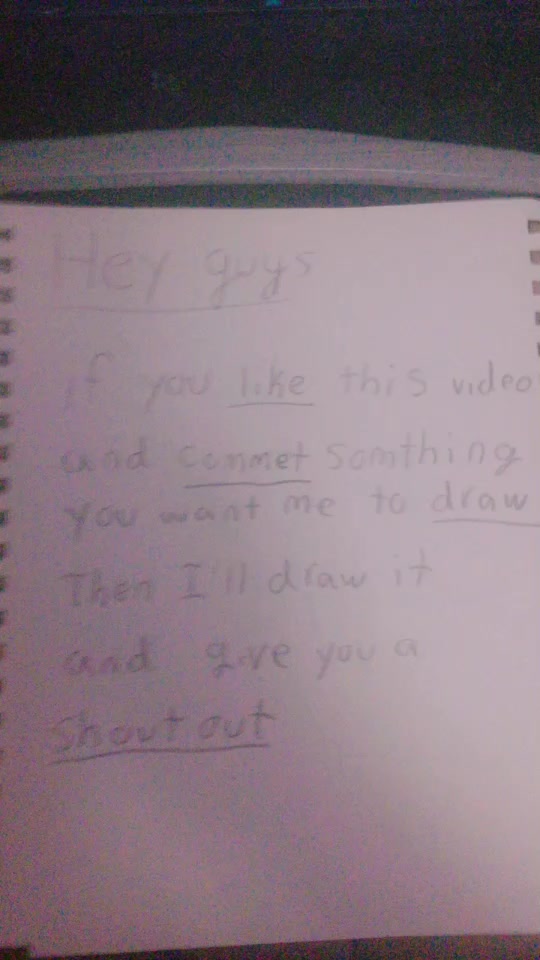 Hey guys
if you like this video
and commet somthing
you want me to draw
Then I'll draw it
and give you a
shout out